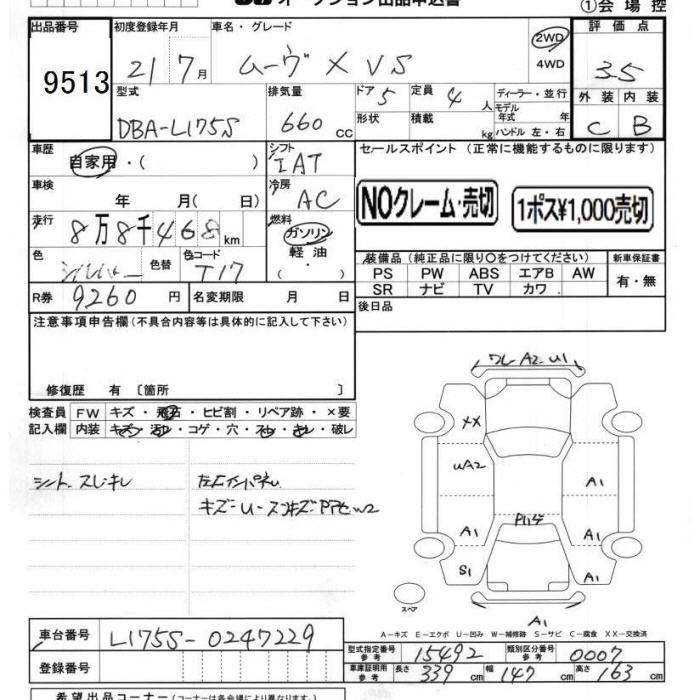 オークション出品申込書
①会場控
出品番号 9513
初度登録年月 21 7月
車名・グレード ムーヴ X VS
2WD
4WD
評価点 3.5
型式 DBA-L175S
排気量 660cc
ドア 5 定員 4人
形状 積載 kg
ディーラー・並行
モデル年式 年
ハンドル 左・右
外装 内装
C B
車歴 自家用・( )
シフト IAT
セールスポイント (正常に機能するものに限ります)
車検 年 月( 日)
冷房 AC
NOクレーム・売切 1ポス¥1,000売切
走行 8万8千468km
燃料 ガソリン
軽油
( ・ )
色 シルバー 色替 色コード T17
装備品 (純正品に限り○をつけてください) 新車保証書
PS PW ABS エアB AW
SR ナビ TV カワ
有・無
R券 9260円 名変期限 月 日
後日品
注意事項申告欄(不具合内容等は具体的に記入して下さい)
修復歴 有 〔箇所 〕
検査員 FW キズ・飛石・ヒビ割・リペア跡・×要
記入欄 内装 キズ・汚れ・コゲ・穴・スレ・キレ・破レ
シート スレキレ
キズ
ワレ A2 U1
XX
UA2
A1
A1
A1
S1
A1
A1
スペア
A-キズ E-エクボ U-凹み W-補修跡 S-サビ C-腐食 XX-交換済
車台番号 L175S-0247229
型式指定番号 参考 15492 類別区分番号 参考 0007
登録番号
車庫証明用 参考 長さ 339cm 幅 147cm 高さ 163cm
希望出品コーナー(コーナーは各会場により